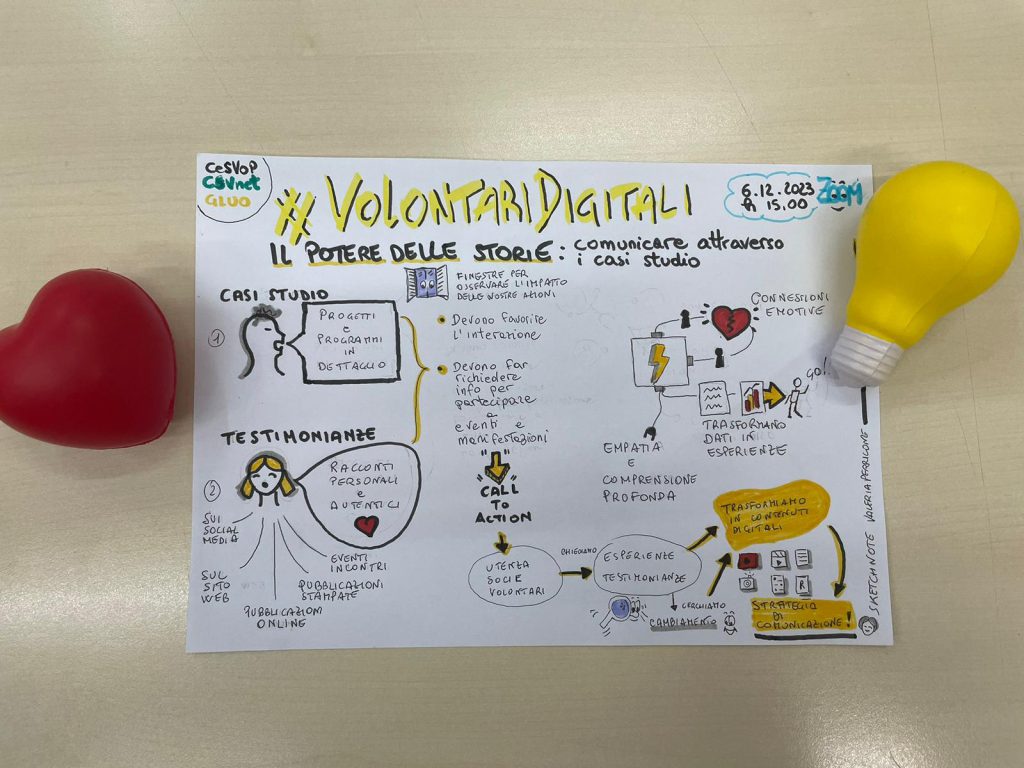 CeSVoP
CSVnet
GLUO
#VOLONTARIDIGITALI
6.12.2023
h 15.00
ZOOM
IL POTERE DELLE STORIE: comunicare attraverso
i casi studio
FINESTRE PER
OSSERVARE L'IMPATTO
DELLE NOSTRE AZIONI
CASI STUDIO
1
PROGETTI
e
PROGRAMMI
IN
DETTAGLIO
Devono favorire
l'interazione
Devono far
richiedere
info per
partecipare
a
eventi e
manifestazioni
CALL
TO
ACTION
TESTIMONIANZE
2
RACCONTI
PERSONALI
e
AUTENTICI
SUI
SOCIAL
MEDIA
SUL
SITO
WEB
PUBBLICAZIONI
ONLINE
PUBBLICAZIONI
STAMPATE
EVENTI
INCONTRI
CONNESSIONI
EMOTIVE
GO!
TRASFORMANO
DATI IN
ESPERIENZE
EMPATIA
E
COMPRENSIONE
PROFONDA
UTENZA
SOCI E
VOLONTARI
CHIEDIAMO
ESPERIENZE
TESTIMONIANZE
CERCHIAMO
CAMBIAMENTO
TRASFORMIAMO
IN CONTENUTI
DIGITALI
R
STRATEGIA
DI
COMUNICAZIONE!
SKETCHNOTE VALERIAPFORICONE